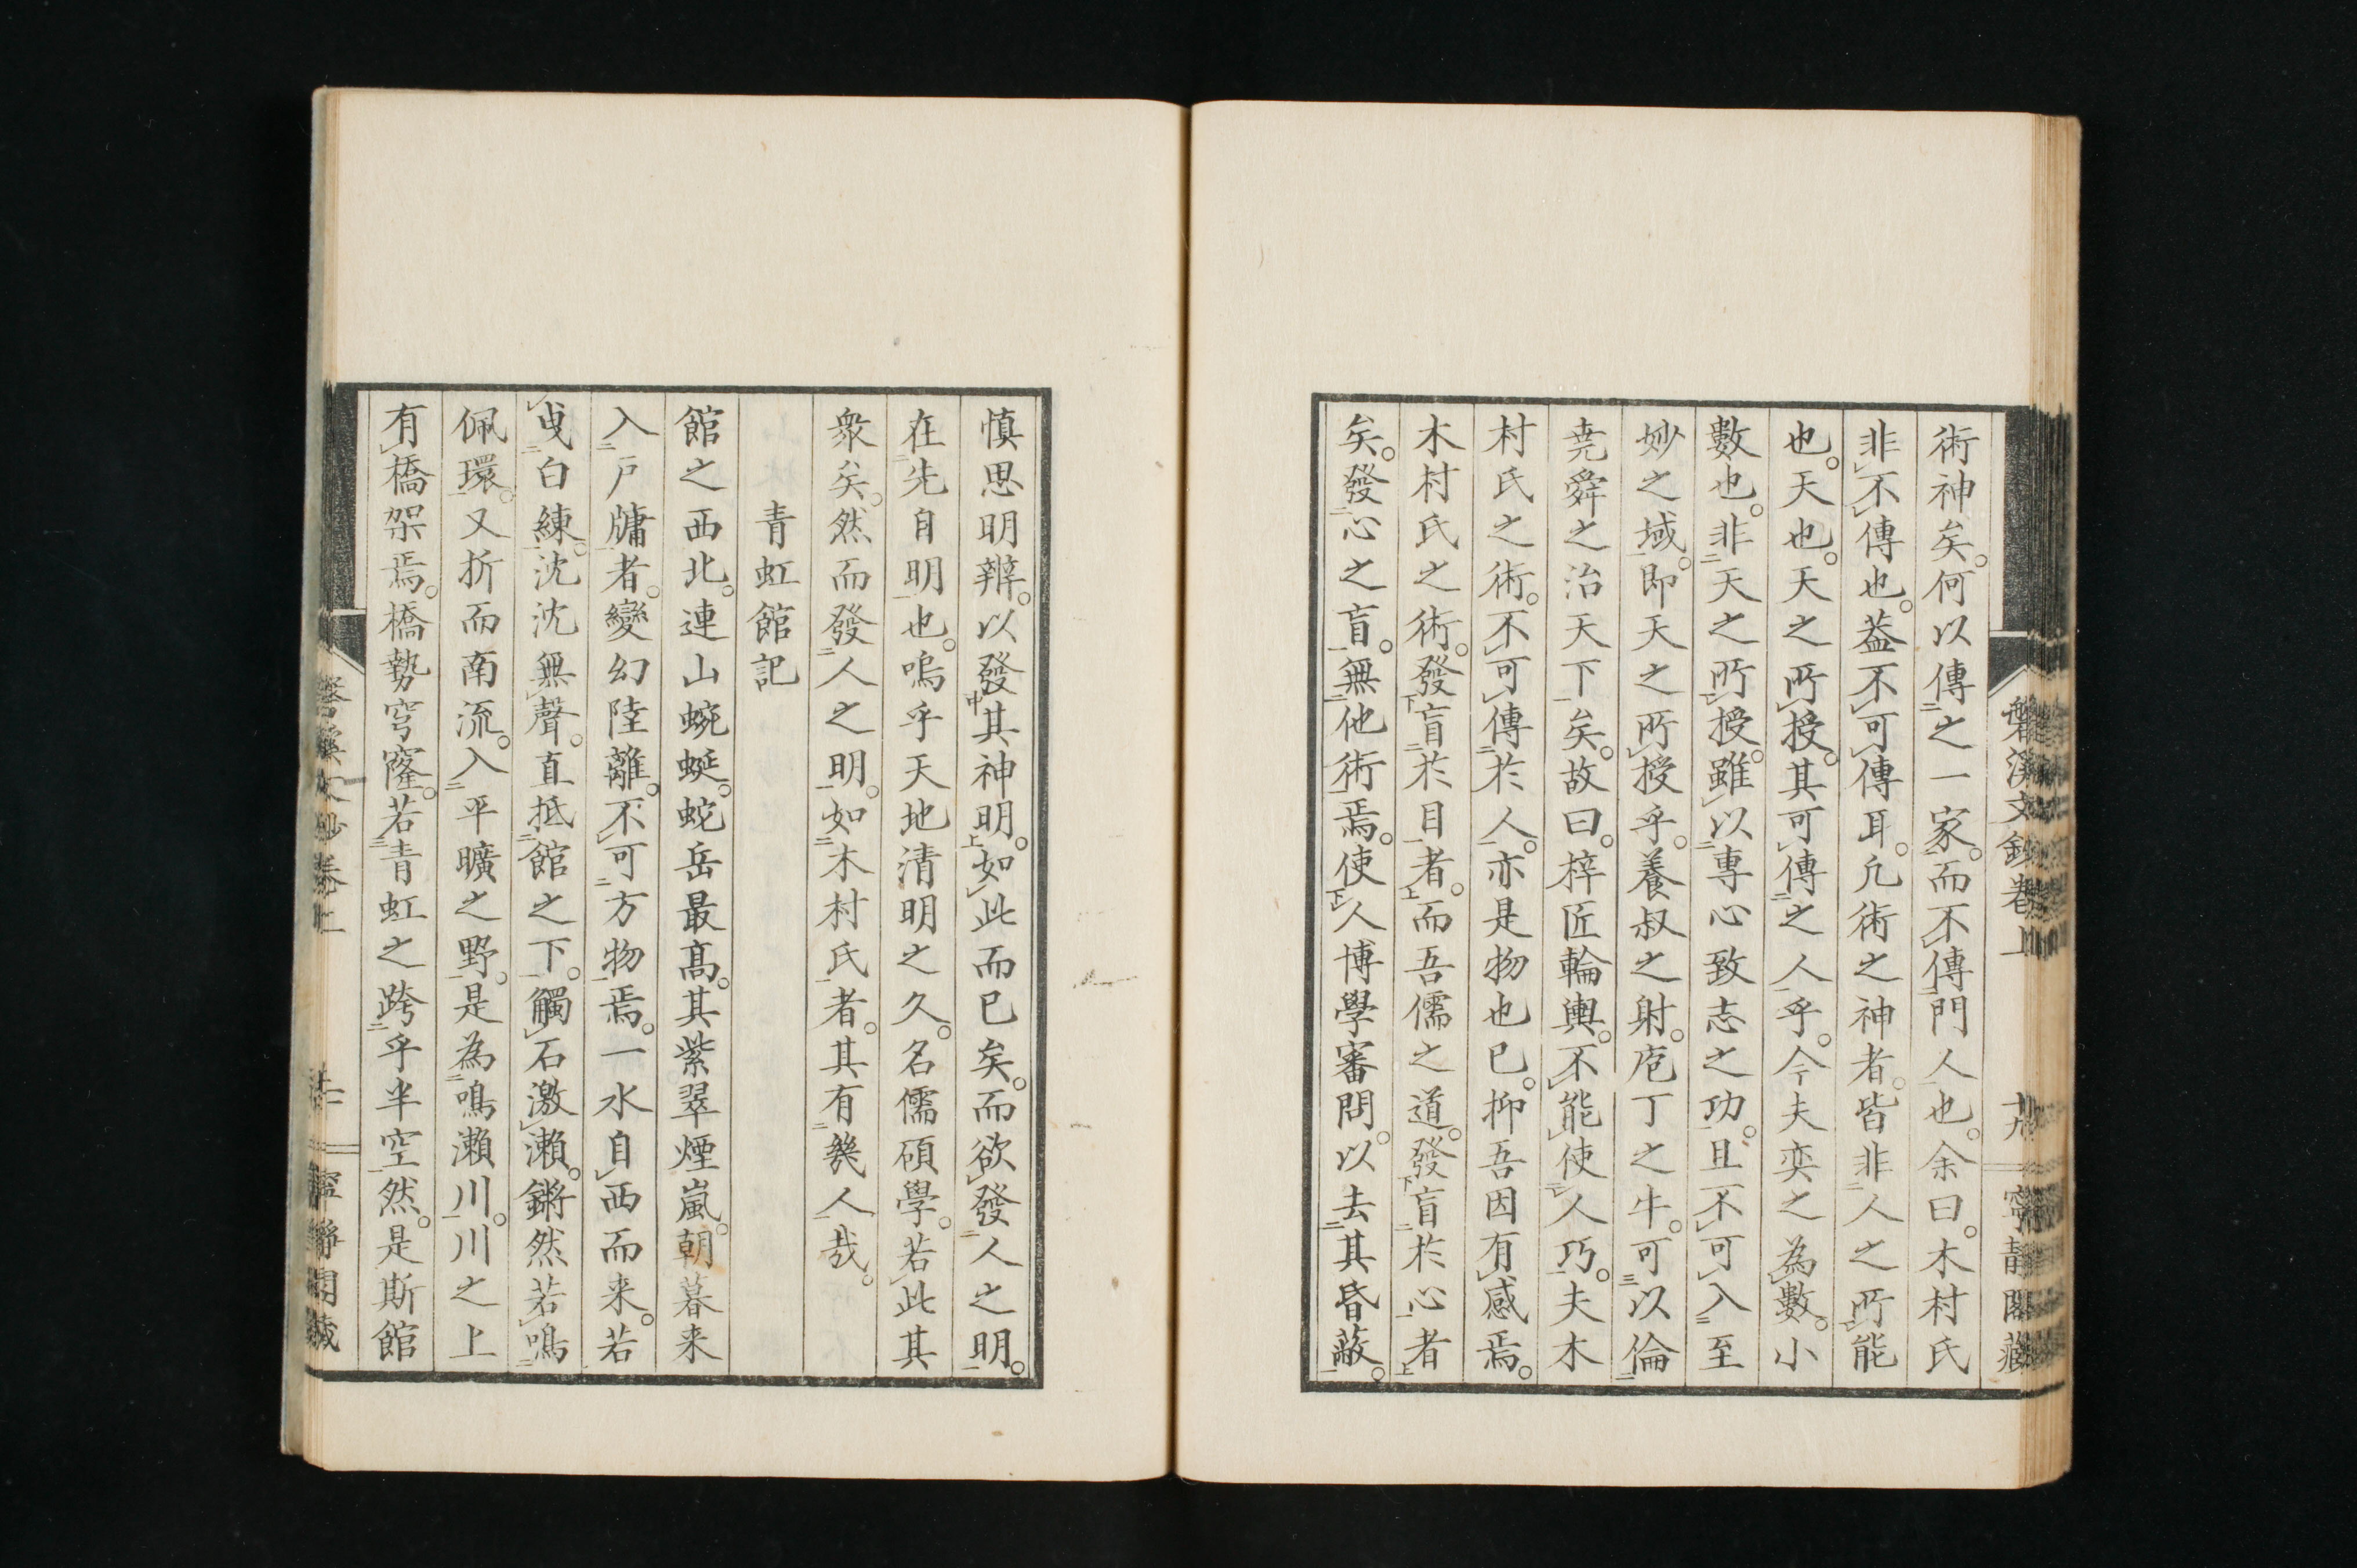 術神矣。何以傳之一家。而不傳門人也。余曰。木村氏
非不傳也。蓋不可傳耳。凡術之神者。皆非人之所能
也。天也。天之所授。其可傳之人乎。今夫奕之為數。小
數也。非天之所授。雖以專心致志之功。且不可入至
妙之域。即天之所授乎。養叔之射。庖丁之牛。可以倫
堯舜之治天下矣。故曰。梓匠輪輿。不能使人巧。夫木
村氏之術。不可傳於人。亦是物也已。抑吾因有感焉。
木村氏之術。發盲於目者。而吾儒之道。發盲於心者
矣。發心之盲。無他術焉。使人博學審問。以去其昏蔽。
磐溪文鈔卷上 十九 寧靜閣藏
慎思明辨。以發其神明。如此而已矣。而欲發人之明。
在先自明也。嗚乎天地清明之久。名儒碩學。若此其
衆矣。然而發人之明。如木村氏者。其有幾人哉。
青虹館記
館之西北。連山蜿蜒。蛇岳最高。其紫翠煙嵐。朝暮来
入戶牗者。變幻陸離。不可方物焉。一水自西而来。若
曳白練。沈沈無聲。直抵館之下。觸石激瀨。鏘然若鳴
佩環。又折而南流。入平曠之野。是為鳴瀨川。川之上
有橋架焉。橋勢穹窿。若青虹之跨乎半空然。是斯館